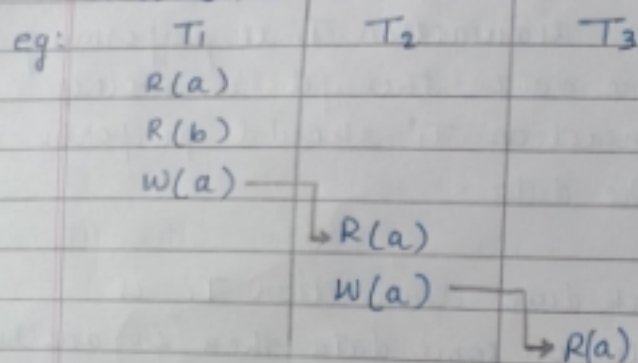 eg: T1 T2 T3
R(a)
R(b)
W(a)
R(a)
W(a)
R(a)